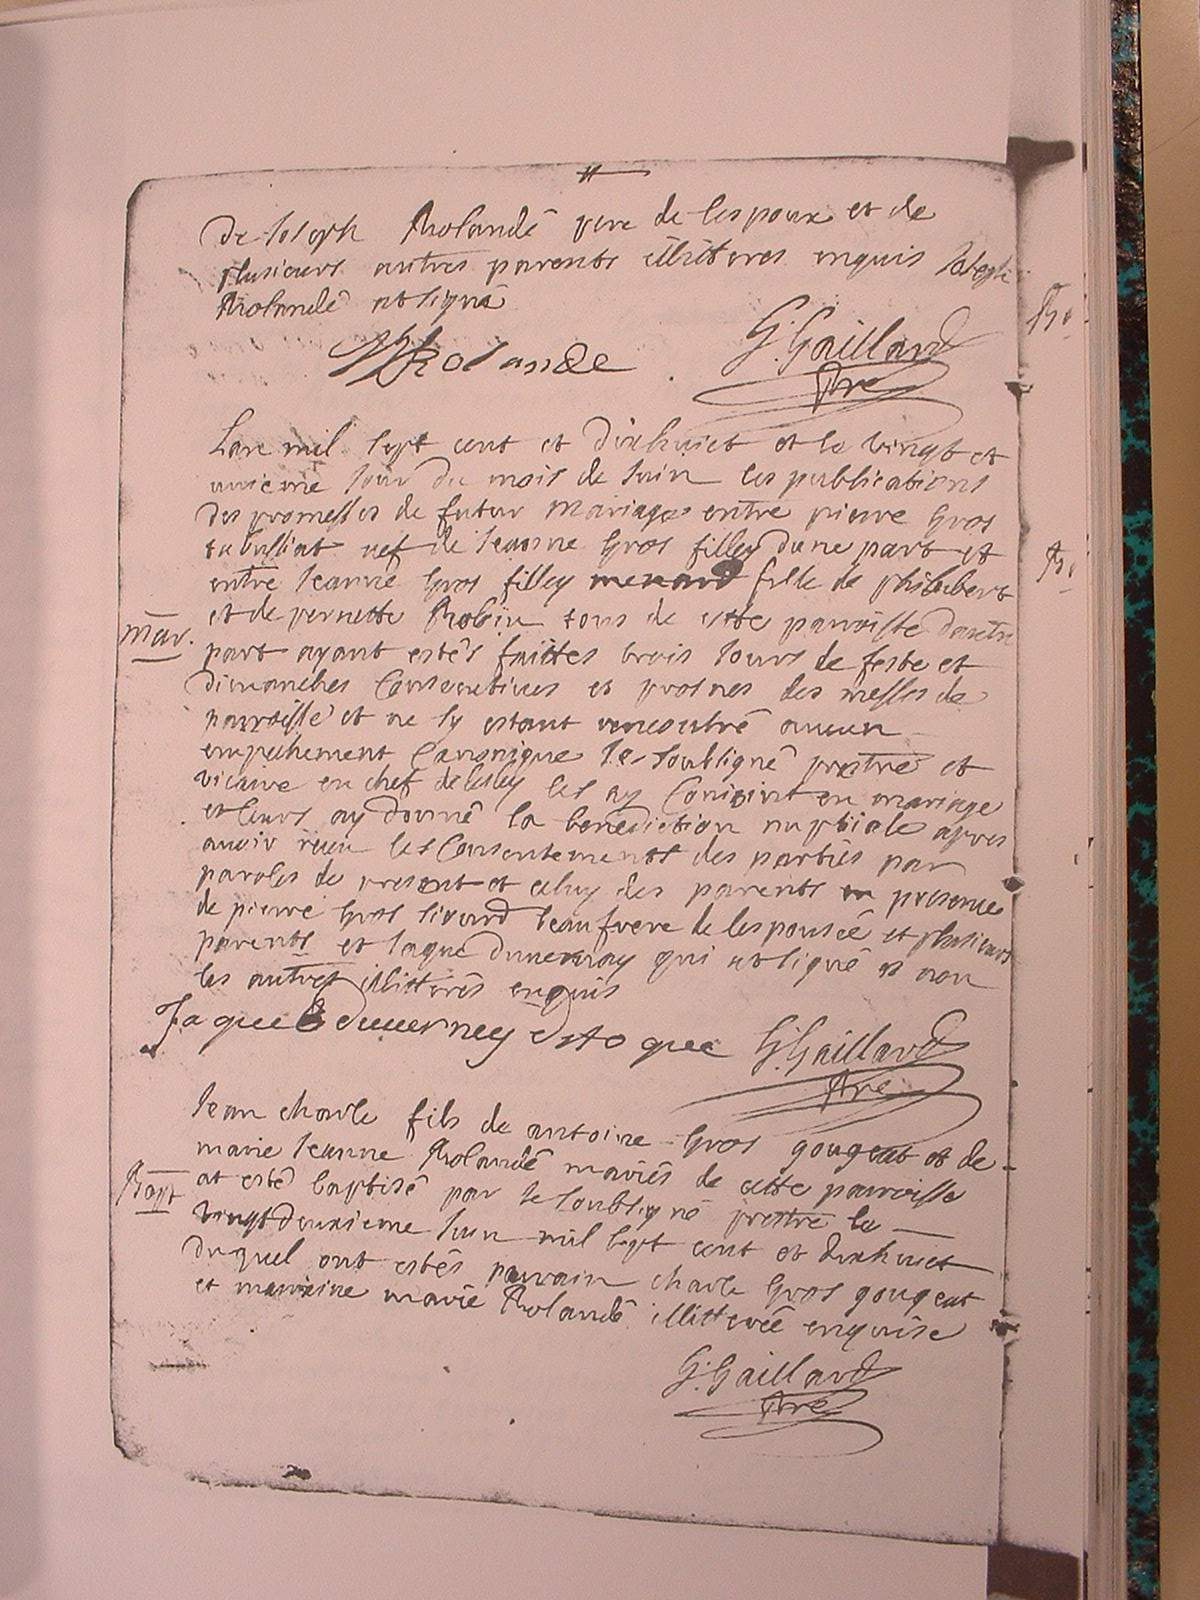 De Joseph Rolandê pere de lespoux et de
plusieurs autres parents illitteres enquis
Rolandê at signé
Rolande
G. Gaillard
Ptre
Lan mil sept cent et dixhuict et le vingt et
unieme jour du mois de juin les publications
des promesses de futur mariage entre pierre Gros
vef de jeanne Gros filley dune part et
entre jeanne Gros filley menard fille de philibert
et de pernette Robin tous de cette paroisse dautre
mar.
part ayant estés faittes trois jours de feste et
dimanches Consecutives es prosnes des messes de
paroisse et ne sy estant rencontré aucun
empechement Canonique je soubsigné prestre et
vicaire en chef de les ay Conjoint en mariage
et leurs ay donné la benediction nuptiale apres
avoir receu les Consentements des parties par
paroles de present et celuy des parents en presence
de pierre Gros sirard beaufrere de lespousée et plusieurs
parents et Jaque duvernay qui at signé et non
les autres illitterés enquis
Jaque duuerney
G. Gaillard
Ptre
Jean charle fils de antoine Gros gougeat et de
marie jeanne Rolandê mariés de cette paroisse
at esté baptisé par je soubsigné prestre le
Bapt
vingtdeuxieme juin mil sept cent et dixhuict
duquel ont estés parrain charle Gros gougeat
et marreine marie Rolandê illitterée enquise
G. Gaillard
Ptre